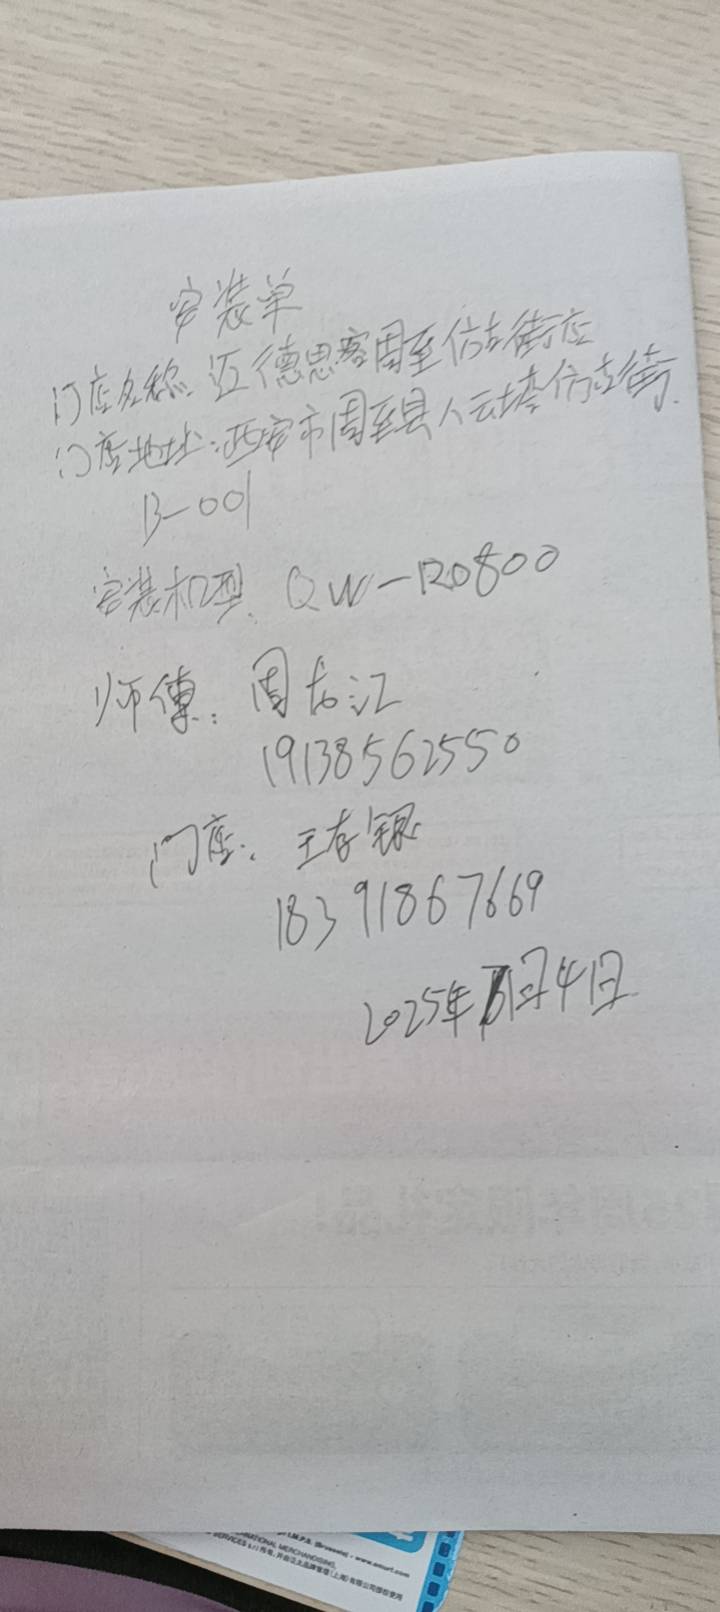 安装单
门店名称:迈德思客周至仿古街店
门店地址:西安市周至县八云塔仿古街
B-001
安装机型:QW-R0800
师傅:周龙江
19138562550
门店:王存银
18391867669
2025年 月4日
I.M.P.S. (Brussels) - www.smurf.com